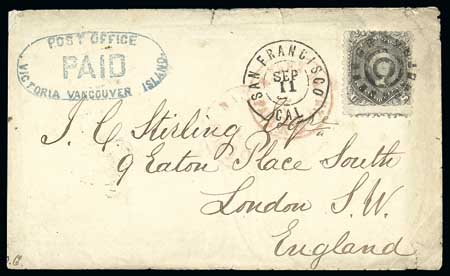 POST OFFICE
PAID
VICTORIA VANCOUVER ISLAND
SAN FRANCISCO
SEP
11
CAL
J. C. Stirling Esqre
9 Eaton Place South
London S.W.
England